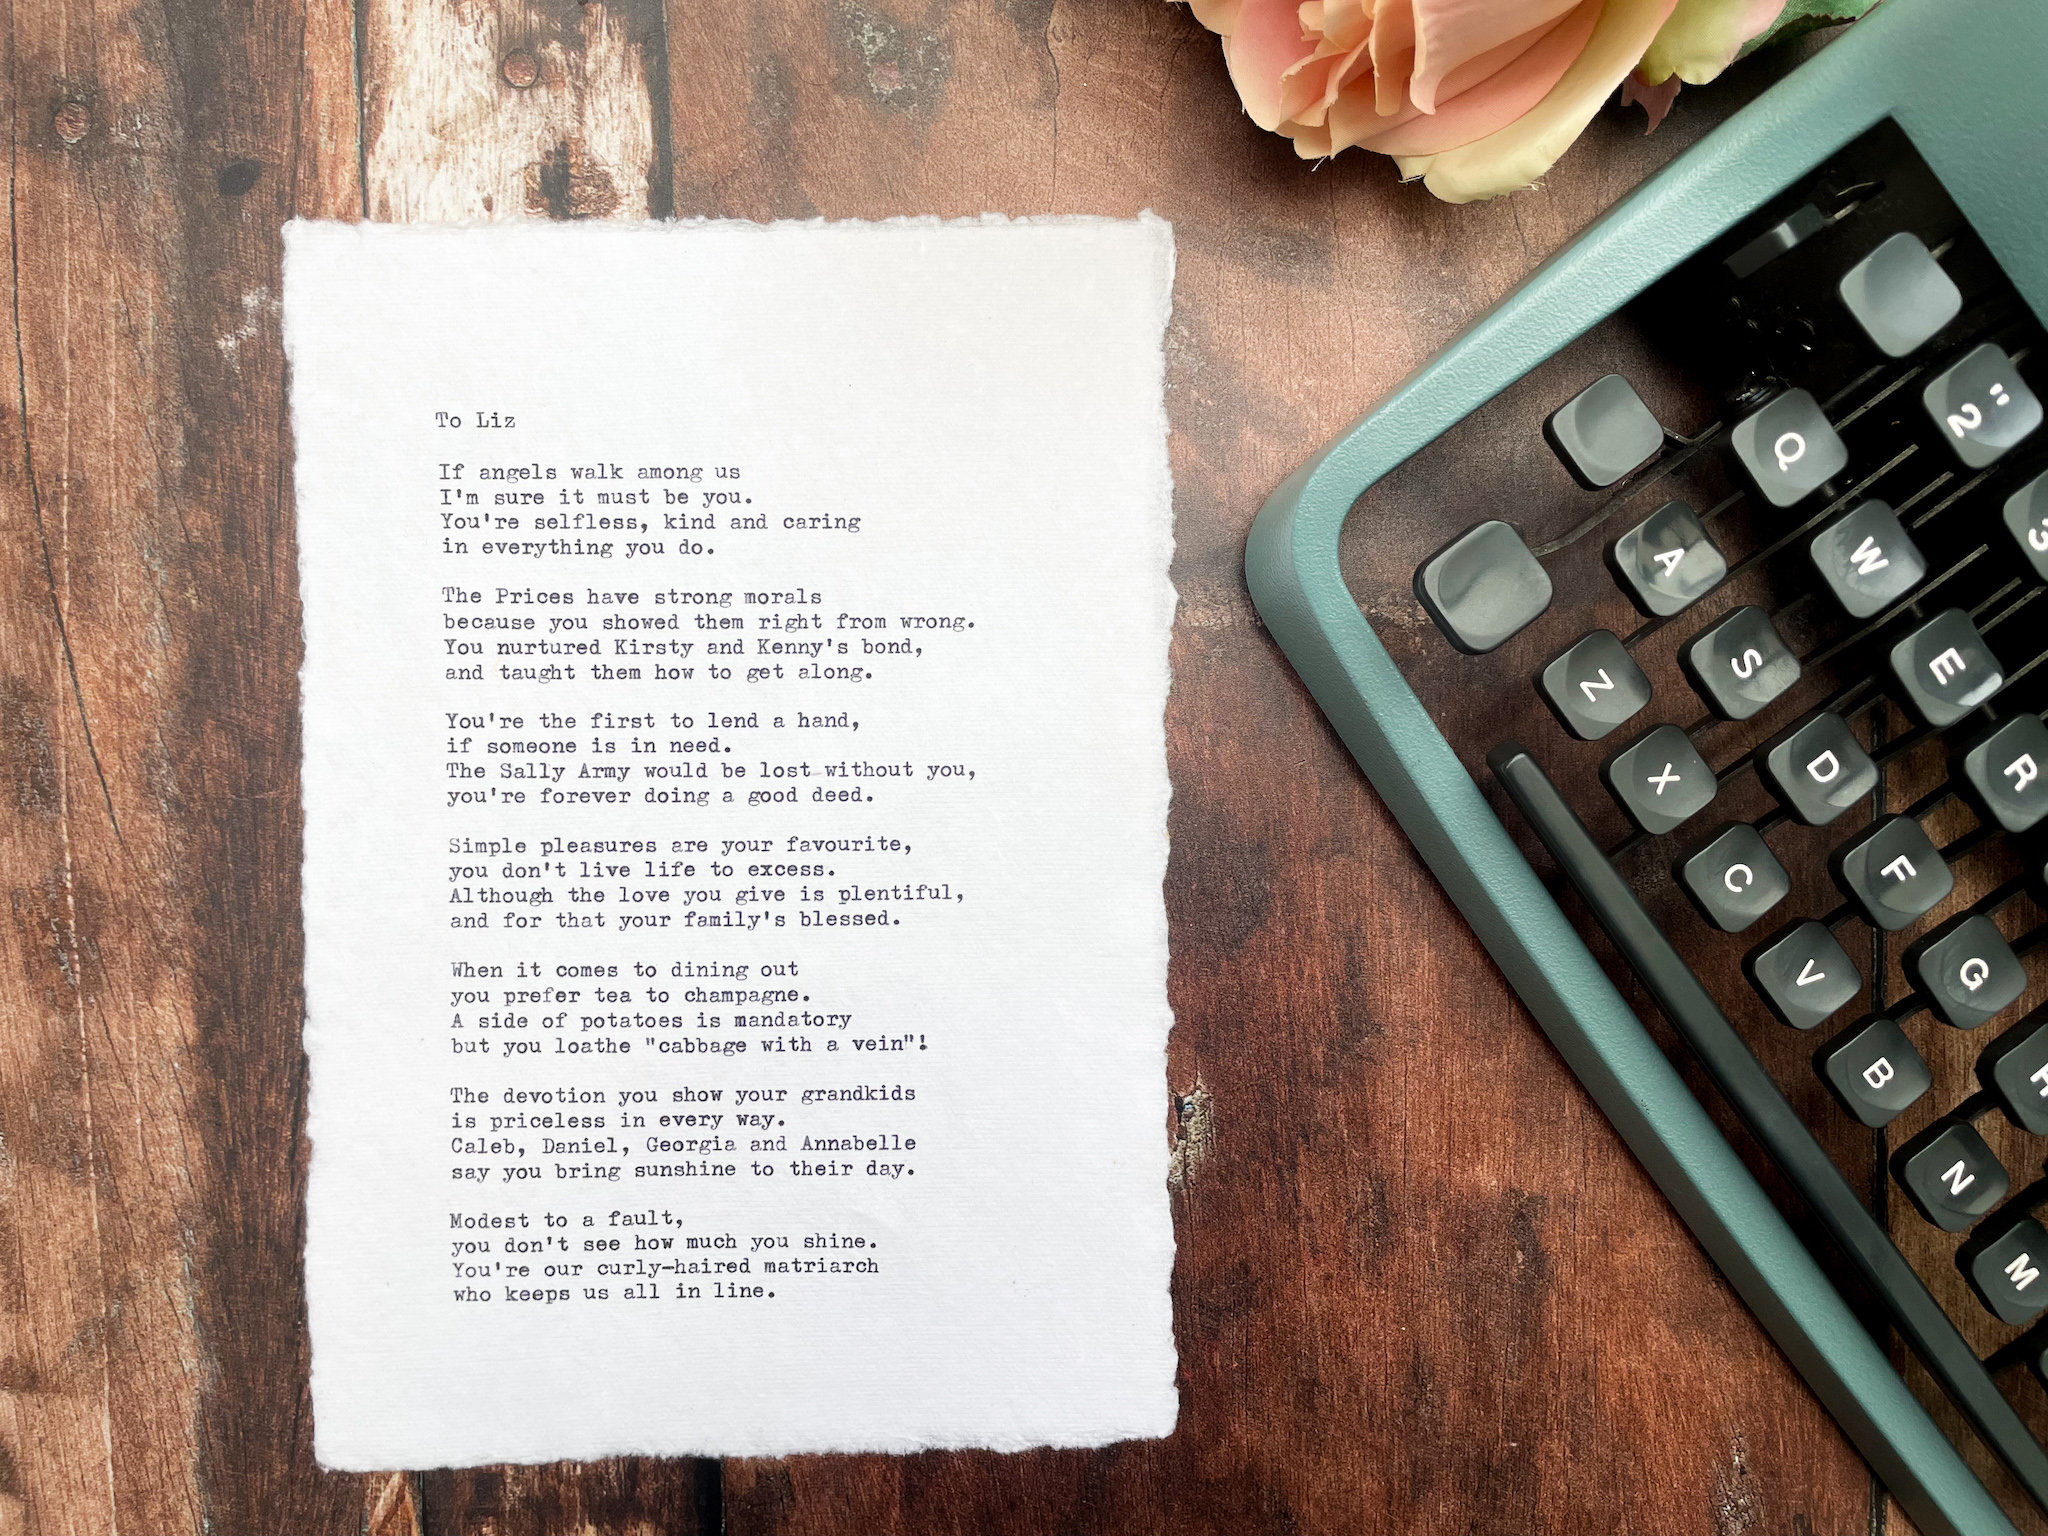 To Liz
If angels walk among us
I'm sure it must be you.
You're selfless, kind and caring
in everything you do.
The Prices have strong morals
because you showed them right from wrong.
You nurtured Kirsty and Kenny's bond,
and taught them how to get along.
You're the first to lend a hand,
if someone is in need.
The Sally Army would be lost without you,
you're forever doing a good deed.
Simple pleasures are your favourite,
you don't live life to excess.
Although the love you give is plentiful,
and for that your family's blessed.
When it comes to dining out
you prefer tea to champagne.
A side of potatoes is mandatory
but you loathe "cabbage with a vein"!
The devotion you show your grandkids
is priceless in every way.
Caleb, Daniel, Georgia and Annabelle
say you bring sunshine to their day.
Modest to a fault,
you don't see how much you shine.
You're our curly-haired matriarch
who keeps us all in line.
" 2 3
Q W E R
A S D F G H
Z X C V B N M